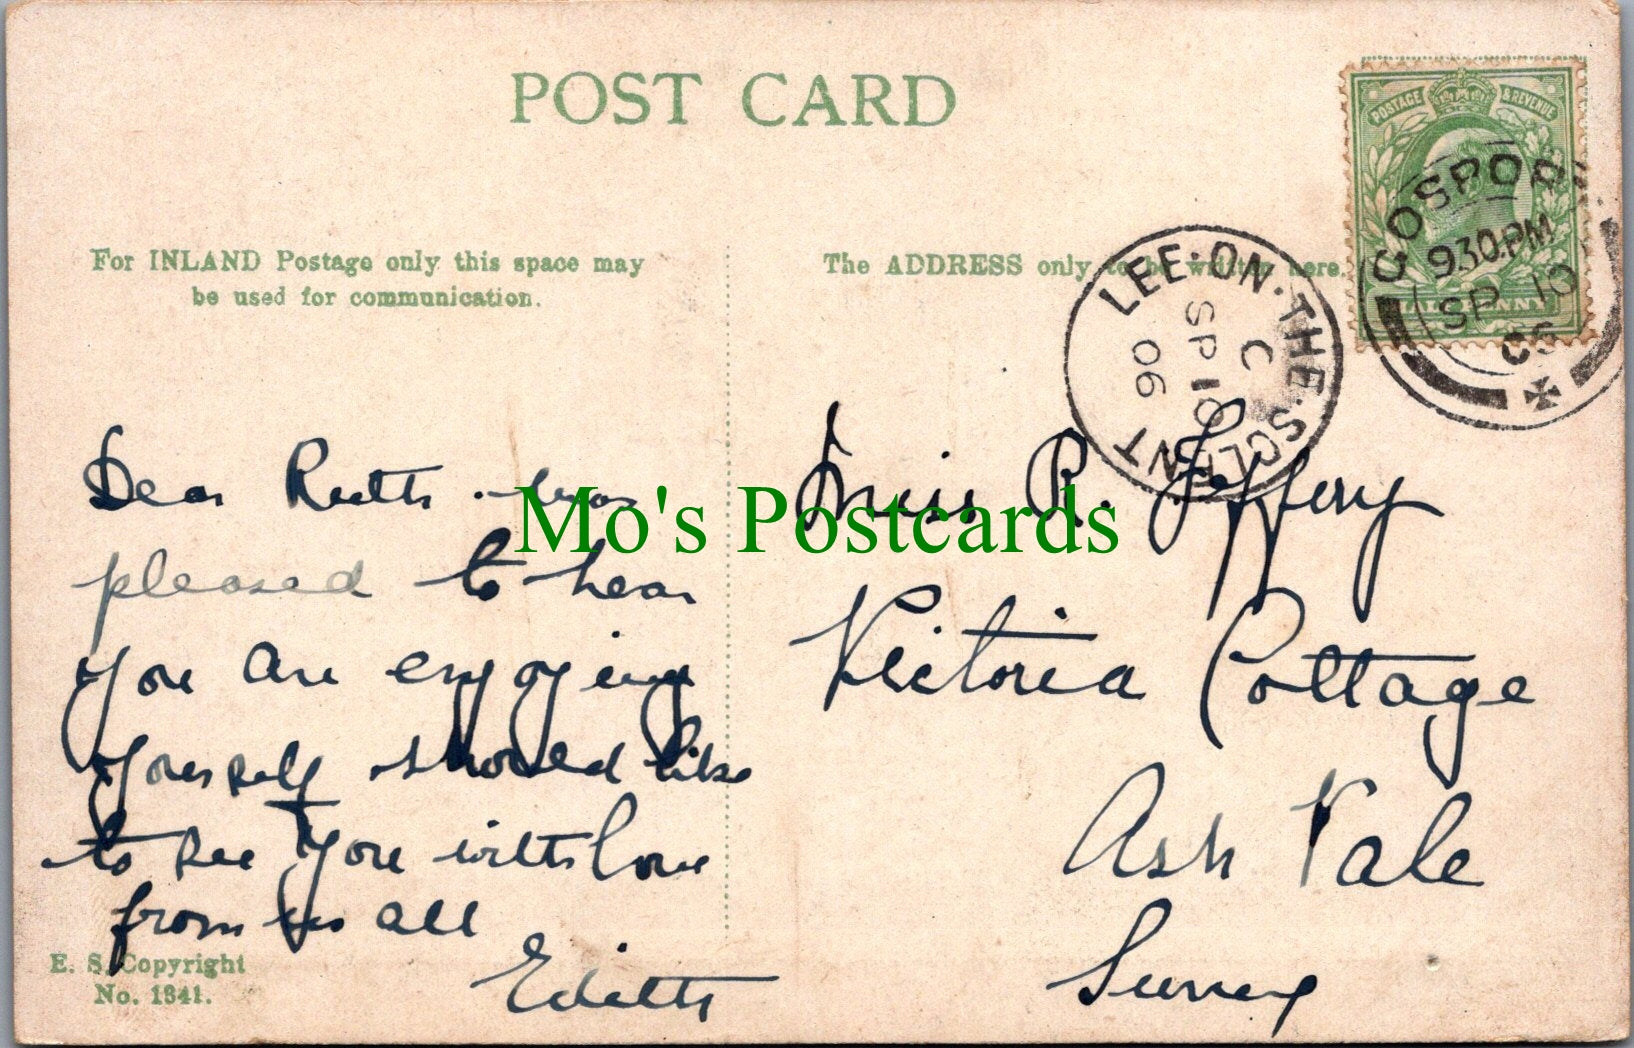 POST CARD
POSTAGE & REVENUE
HALFPENNY
GOSPORT
9.30.PM
SP 10
06
LEE-ON-THE-SOLENT
C
SP 10
06
For INLAND Postage only this space may
be used for communication.
The ADDRESS only to be written here.
Dear Ruth. was
pleased to hear
you are enjoying
yourself should like
to see you with love
from us all
Edith
Miss R. Jeffery
Victoria Cottage
Ash Vale
Surrey
E. S. Copyright
No. 1341.
Mo's Postcards